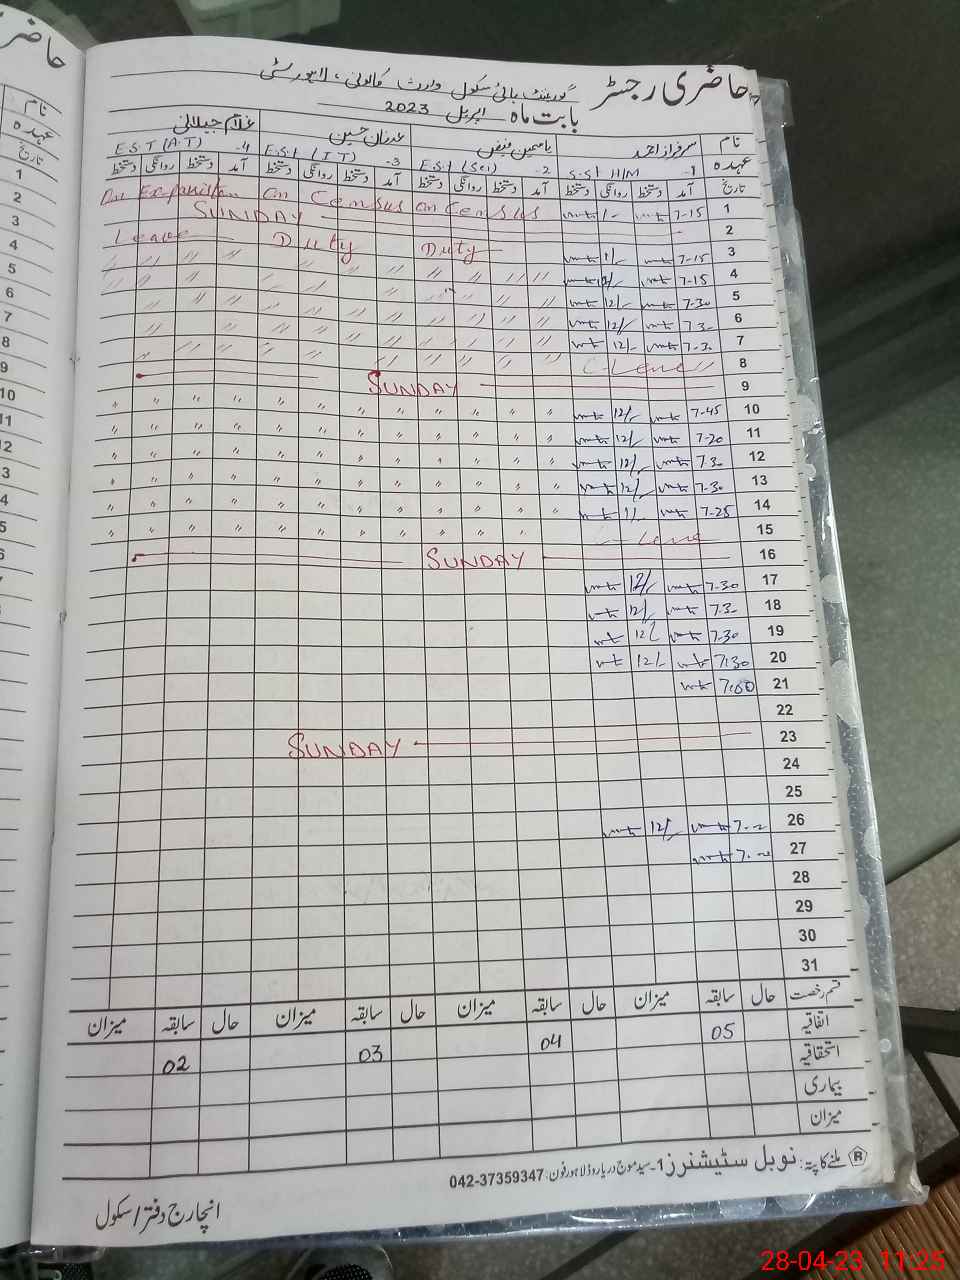 حاضری رجسٹر گورنمنٹ ہائی سکول وارث کالونی، لاہور سٹی
بابت ماہ اپریل 2023
نام سرفراز احمد یاسمین فیض عدنان حسین غلام جیلانی
عہدہ 1- S.S.I H/M 2- E.S.I (Sci) 3- E.S.I (I.T) 4- E.S.T (A.T)
تاریخ آمد دستخط روانگی دستخط آمد دستخط روانگی دستخط آمد دستخط روانگی دستخط آمد دستخط روانگی دستخط
1 7-15 1/- on Census on Census
2 SUNDAY
3 7-15 1/- Duty Duty Leave
4 7-15 〃 〃 〃 〃
5 7-30 12/- 〃 〃 〃 〃
6 7-3- 12/- 〃 〃 〃 〃
7 7-3- 12/- 〃 〃 〃 〃
8 C-Leave 〃 〃 〃 〃
9 SUNDAY
10 7-45 12/- 〃 〃 〃 〃 〃 〃 〃 〃 〃 〃 〃 〃
11 7-20 12/- 〃 〃 〃 〃 〃 〃 〃 〃 〃 〃 〃 〃
12 7-3- 12/- 〃 〃 〃 〃 〃 〃 〃 〃 〃 〃 〃 〃
13 7-30 12/- 〃 〃 〃 〃 〃 〃 〃 〃 〃 〃 〃 〃
14 7-25 1/- 〃 〃 〃 〃 〃 〃 〃 〃 〃 〃 〃 〃
15 〃 〃 〃 〃 〃 〃 〃 〃 〃 〃 〃 〃
16 SUNDAY
17 7-30 12/-
18 7-3- 12/-
19 7-30 12/
20 7:30 12/-
21 7:00
22
23 SUNDAY
24
25
26 7-- 12/-
27 7--
28
29
30
31
قسم رخصت حال سابقہ میزان حال سابقہ میزان حال سابقہ میزان حال سابقہ میزان
اتفاقیہ 05 04 03 02
استحقاقیہ
بیماری
میزان
ملنے کا پتہ: نوبل سٹیشنرز 1۔سید موج دریا روڈ لاہور فون: 042-37359347
انچارج دفتر / سکول
حاضری
نام
عہدہ
تاریخ
1
2
3
4
5
6
7
8
9
10
11
12
3
4
5
6
28-04-23 11:25